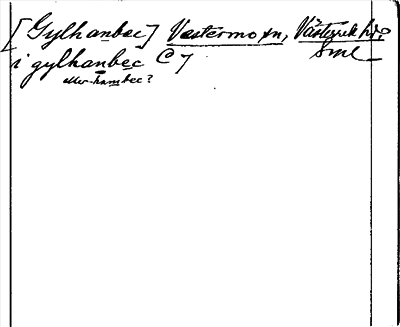 [Gylhanbec] Vastermo sn, Västerrek hd?
Sml
i gylhanbec C 7
eller hambec?